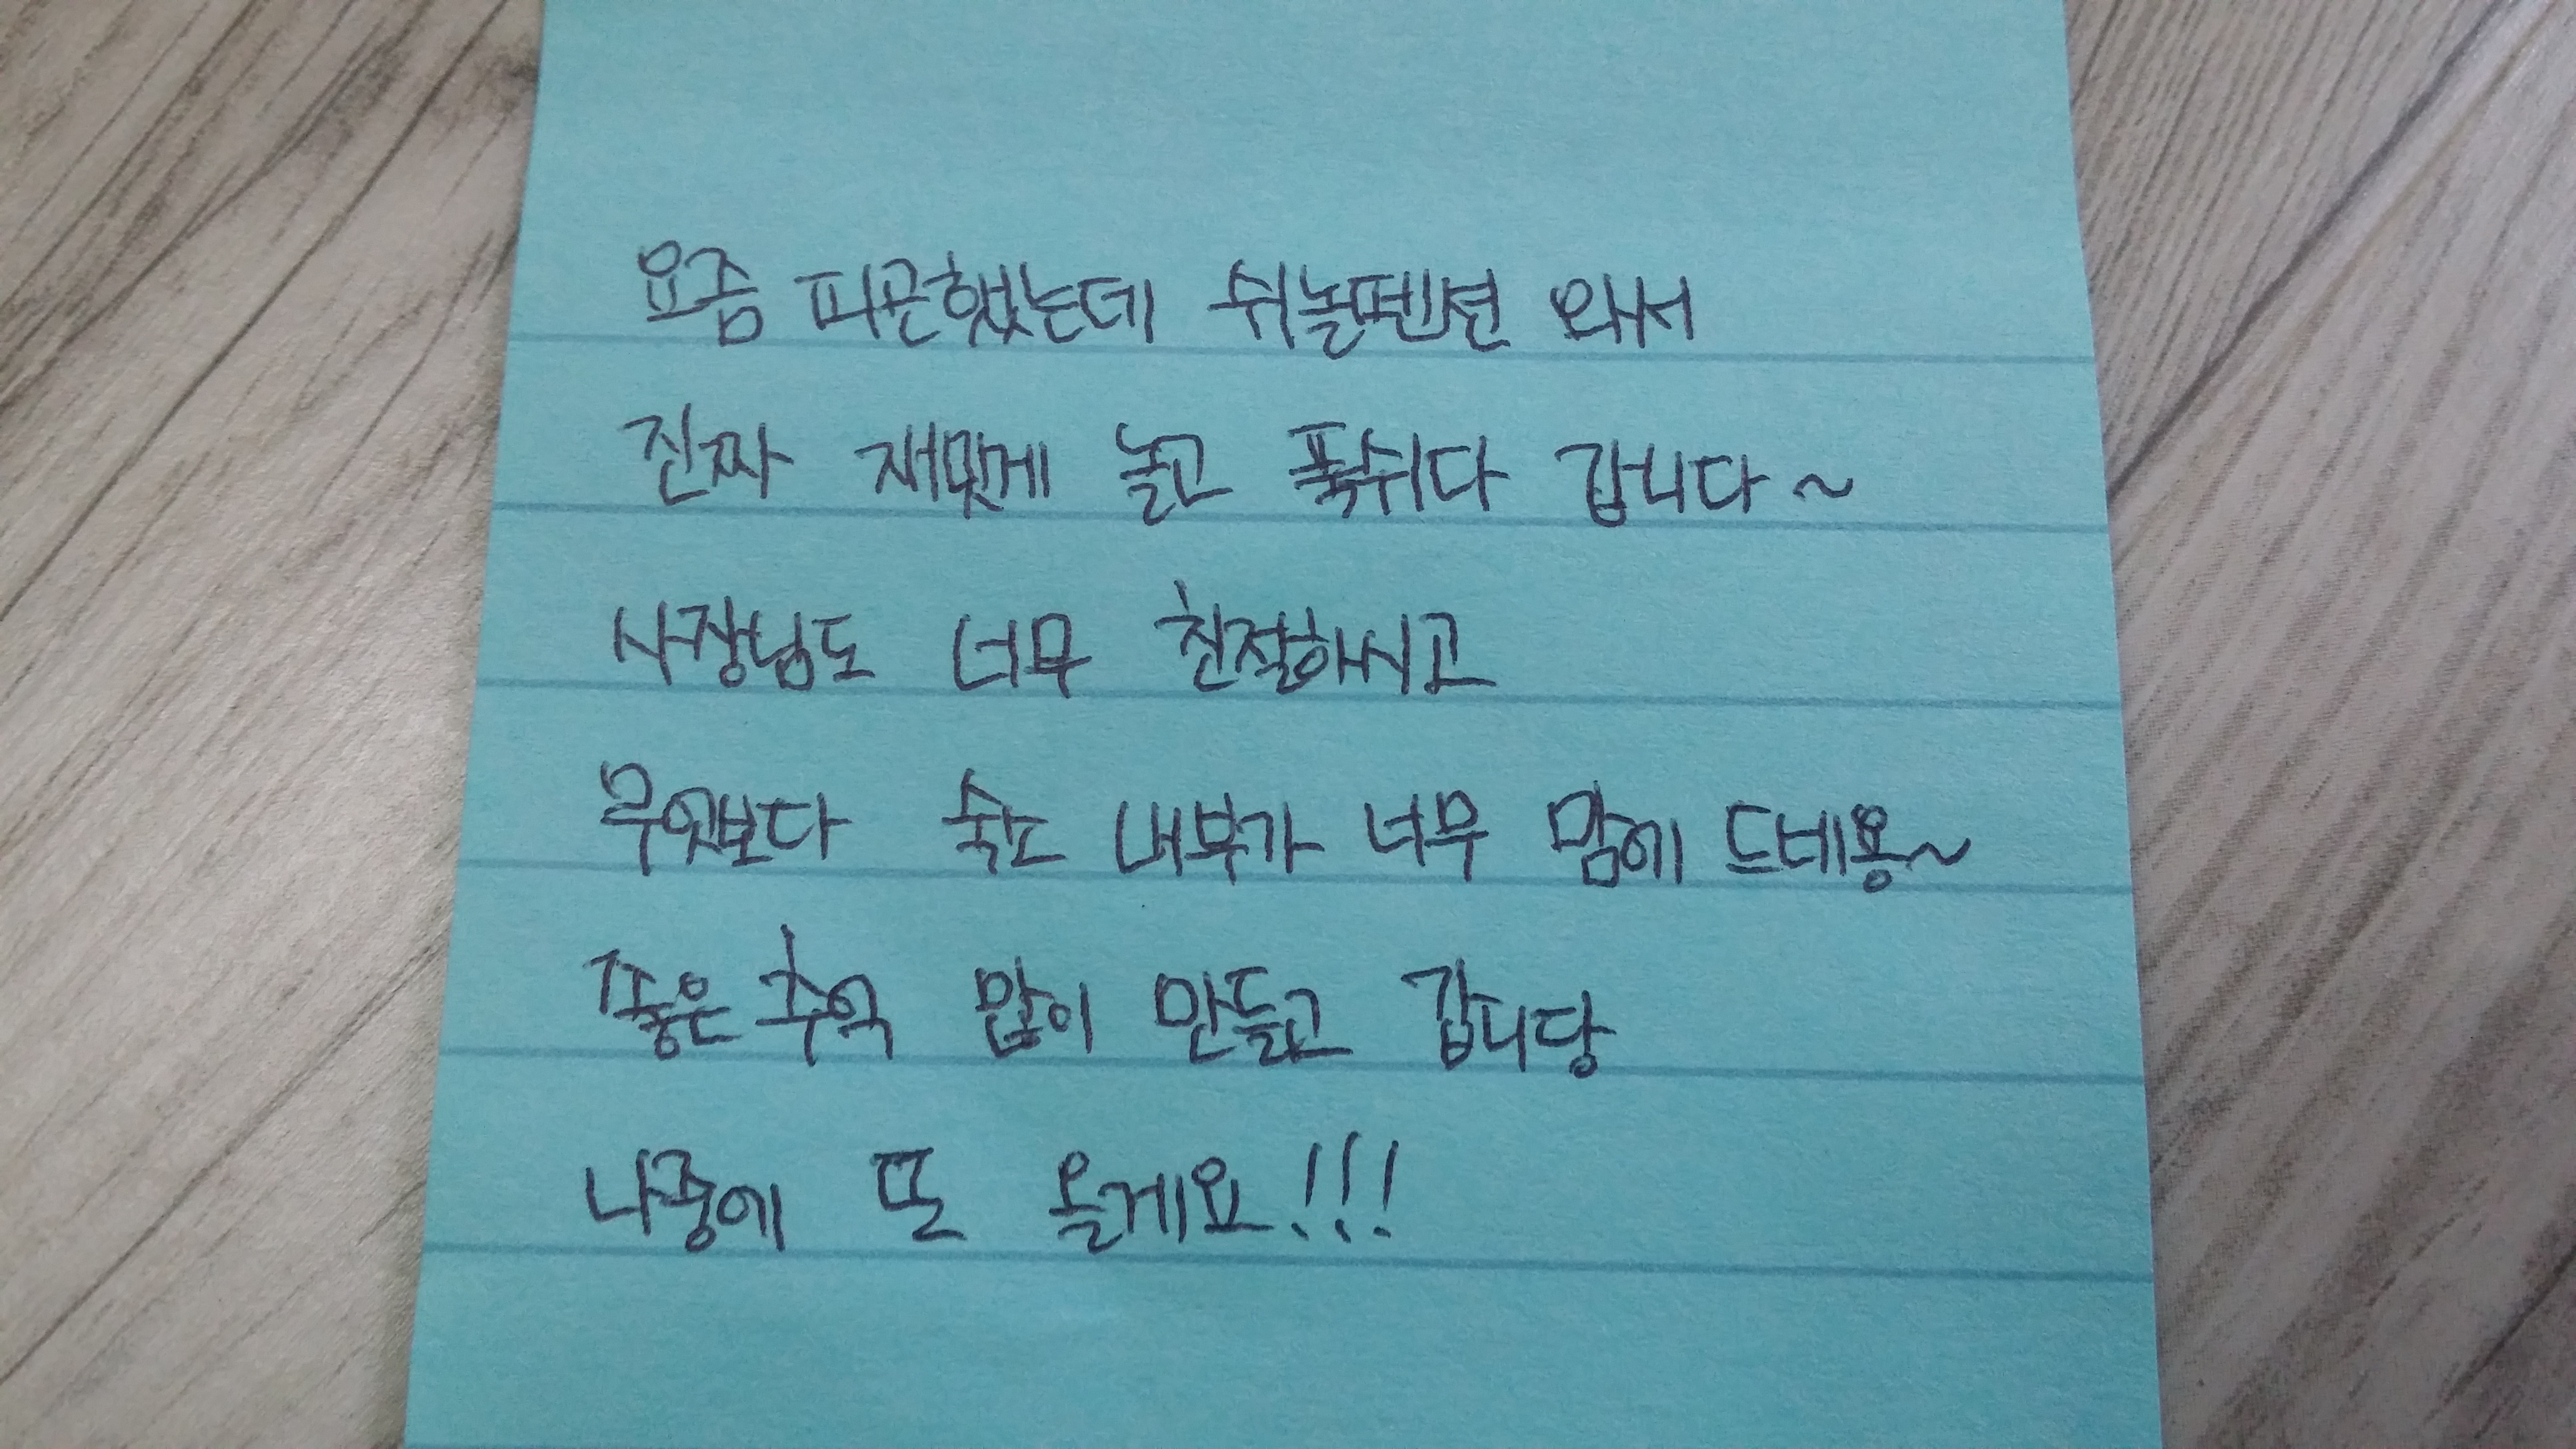 요즘 피곤했는데 쉬놀펜션 와서
진짜 재밋게 놀고 푹쉬다 갑니다~
사장님도 너무 친절하시고
무엇보다 숙소 내부가 너무 맘에 드네용~
좋은 추억 많이 만들고 갑니당
나중에 또 올게요!!!